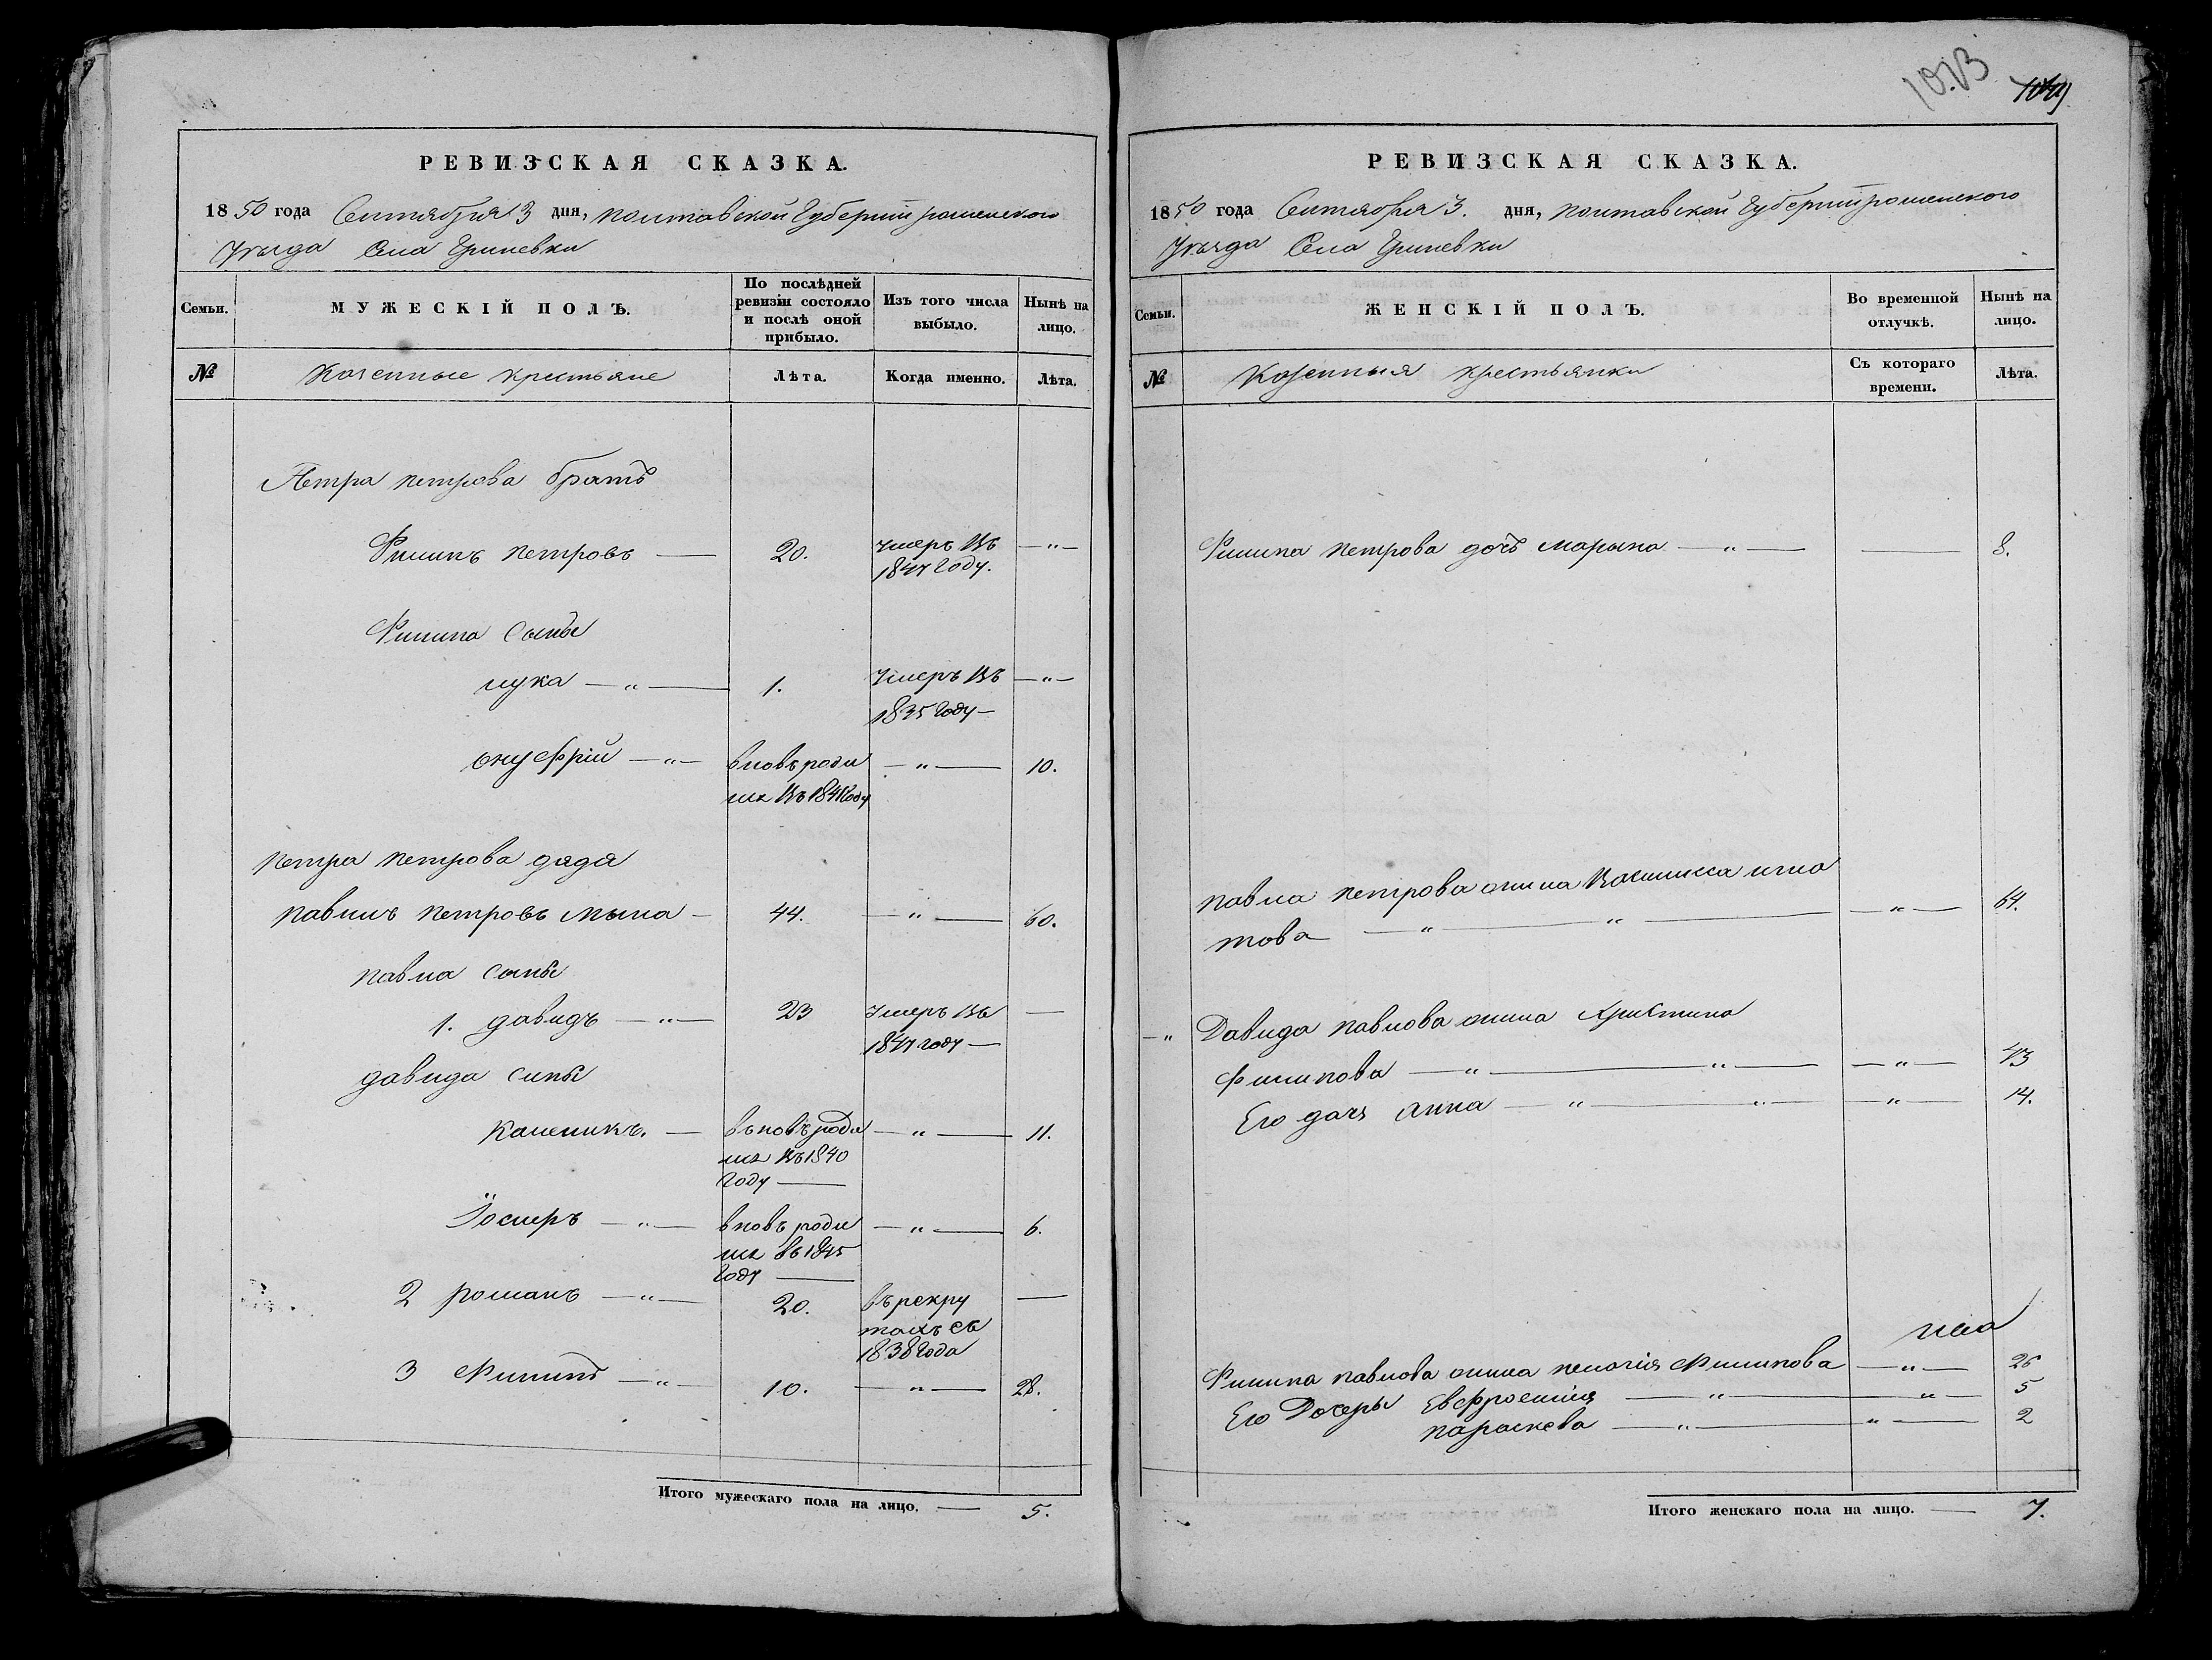 10.13
1049
РЕВИЗСКАЯ СКАЗКА.
1850 года Сентября 3 дня, полтавской Губернии роменского
Уезда Села Гриневки
Семьи.
МУЖЕСКІЙ ПОЛЪ.
По послѣдней ревизіи состояло и послѣ оной прибыло.
Изъ того числа выбыло.
Нынѣ на лицо.
№
Козенные крестьяне
Лѣта.
Когда именно.
Лѣта.
Петра петрова братъ
Филипъ петровъ — 20. умеръ въ — " —
1847 году.
Филипа сыны
лука — " — 1. Умеръ въ — " —
1835 году —
онуфрій — " — вновь роди — " — 10.
лся въ 1841 году
петра петрова дядя
павилъ петровъ — 44. — " — 60.
павла сыны
1. давидъ — " — 23 Умеръ въ —
1847 году —
давида сины
каленикъ. — вьновь роди — " — 11.
лся въ 1840
году —
— " — вновь роди — " — 6.
лся въ 1845
году —
2 романъ — " — 20. въ рекру —
тахъ съ
1838 года
3 Филипъ — " — 10. — " — 28.
Итого мужескаго пола на лицо. — 5.
РЕВИЗСКАЯ СКАЗКА.
1850 года Сентября 3. дня, полтавской Губернии роменского
Уезда Села Гриневки
Семьи.
ЖЕНСКІЙ ПОЛЪ.
Во временной отлучкѣ.
Нынѣ на лицо.
№
Козенныя крестьянки
Съ котораго времени.
Лѣта.
Филипа петрова дочь марына — " — — 8.
павла петрова жина Василиса игна
това — " — " — — " — 64.
— " Давида павлова жина Христина
филипова — " — " — — " — 43
Его дачя анна — " — " — — " — 14.
Филипа павлова жина пелагія Филипова — " — 26
Его Дочеры Евфросинія — " — " — 5
параскева — " — " — 2
Итого женскаго пола на лицо. — 7.